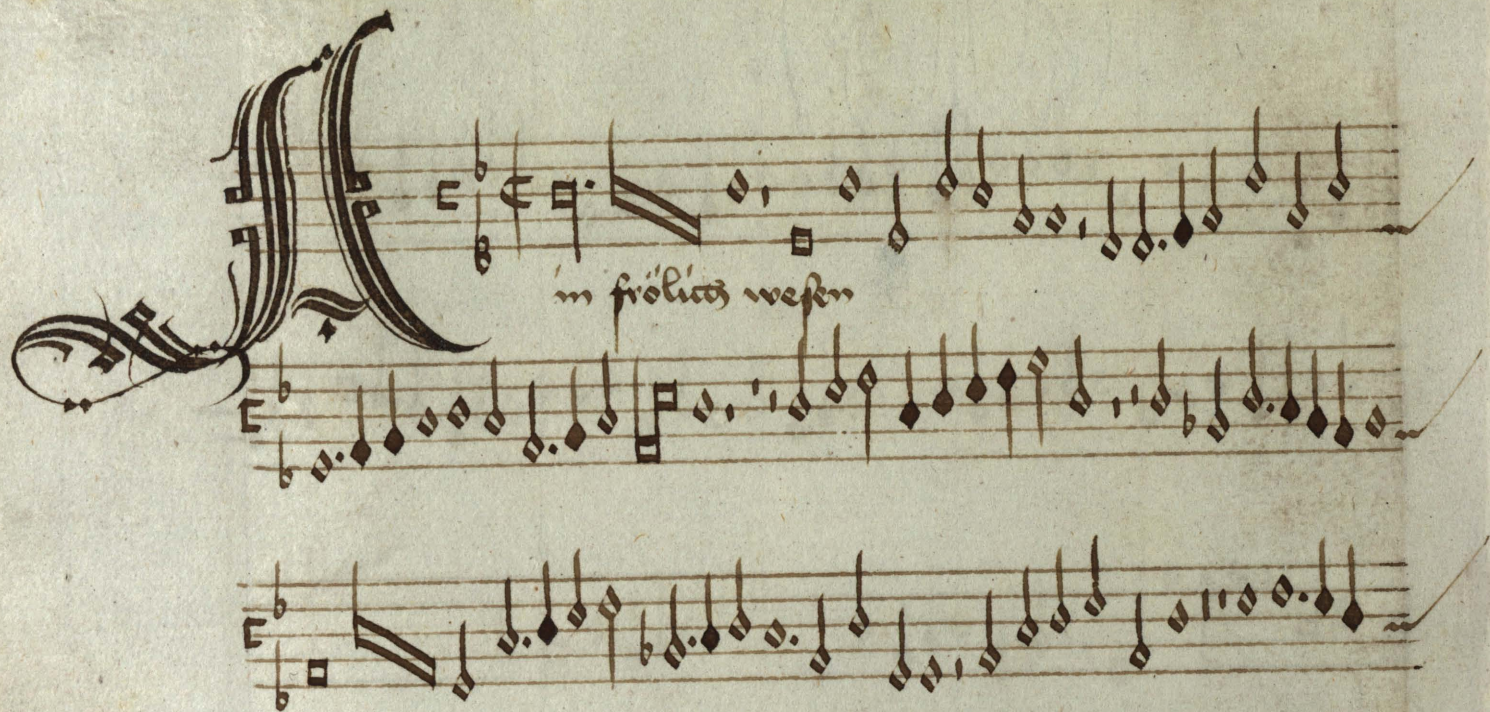 A
in frölich wesen